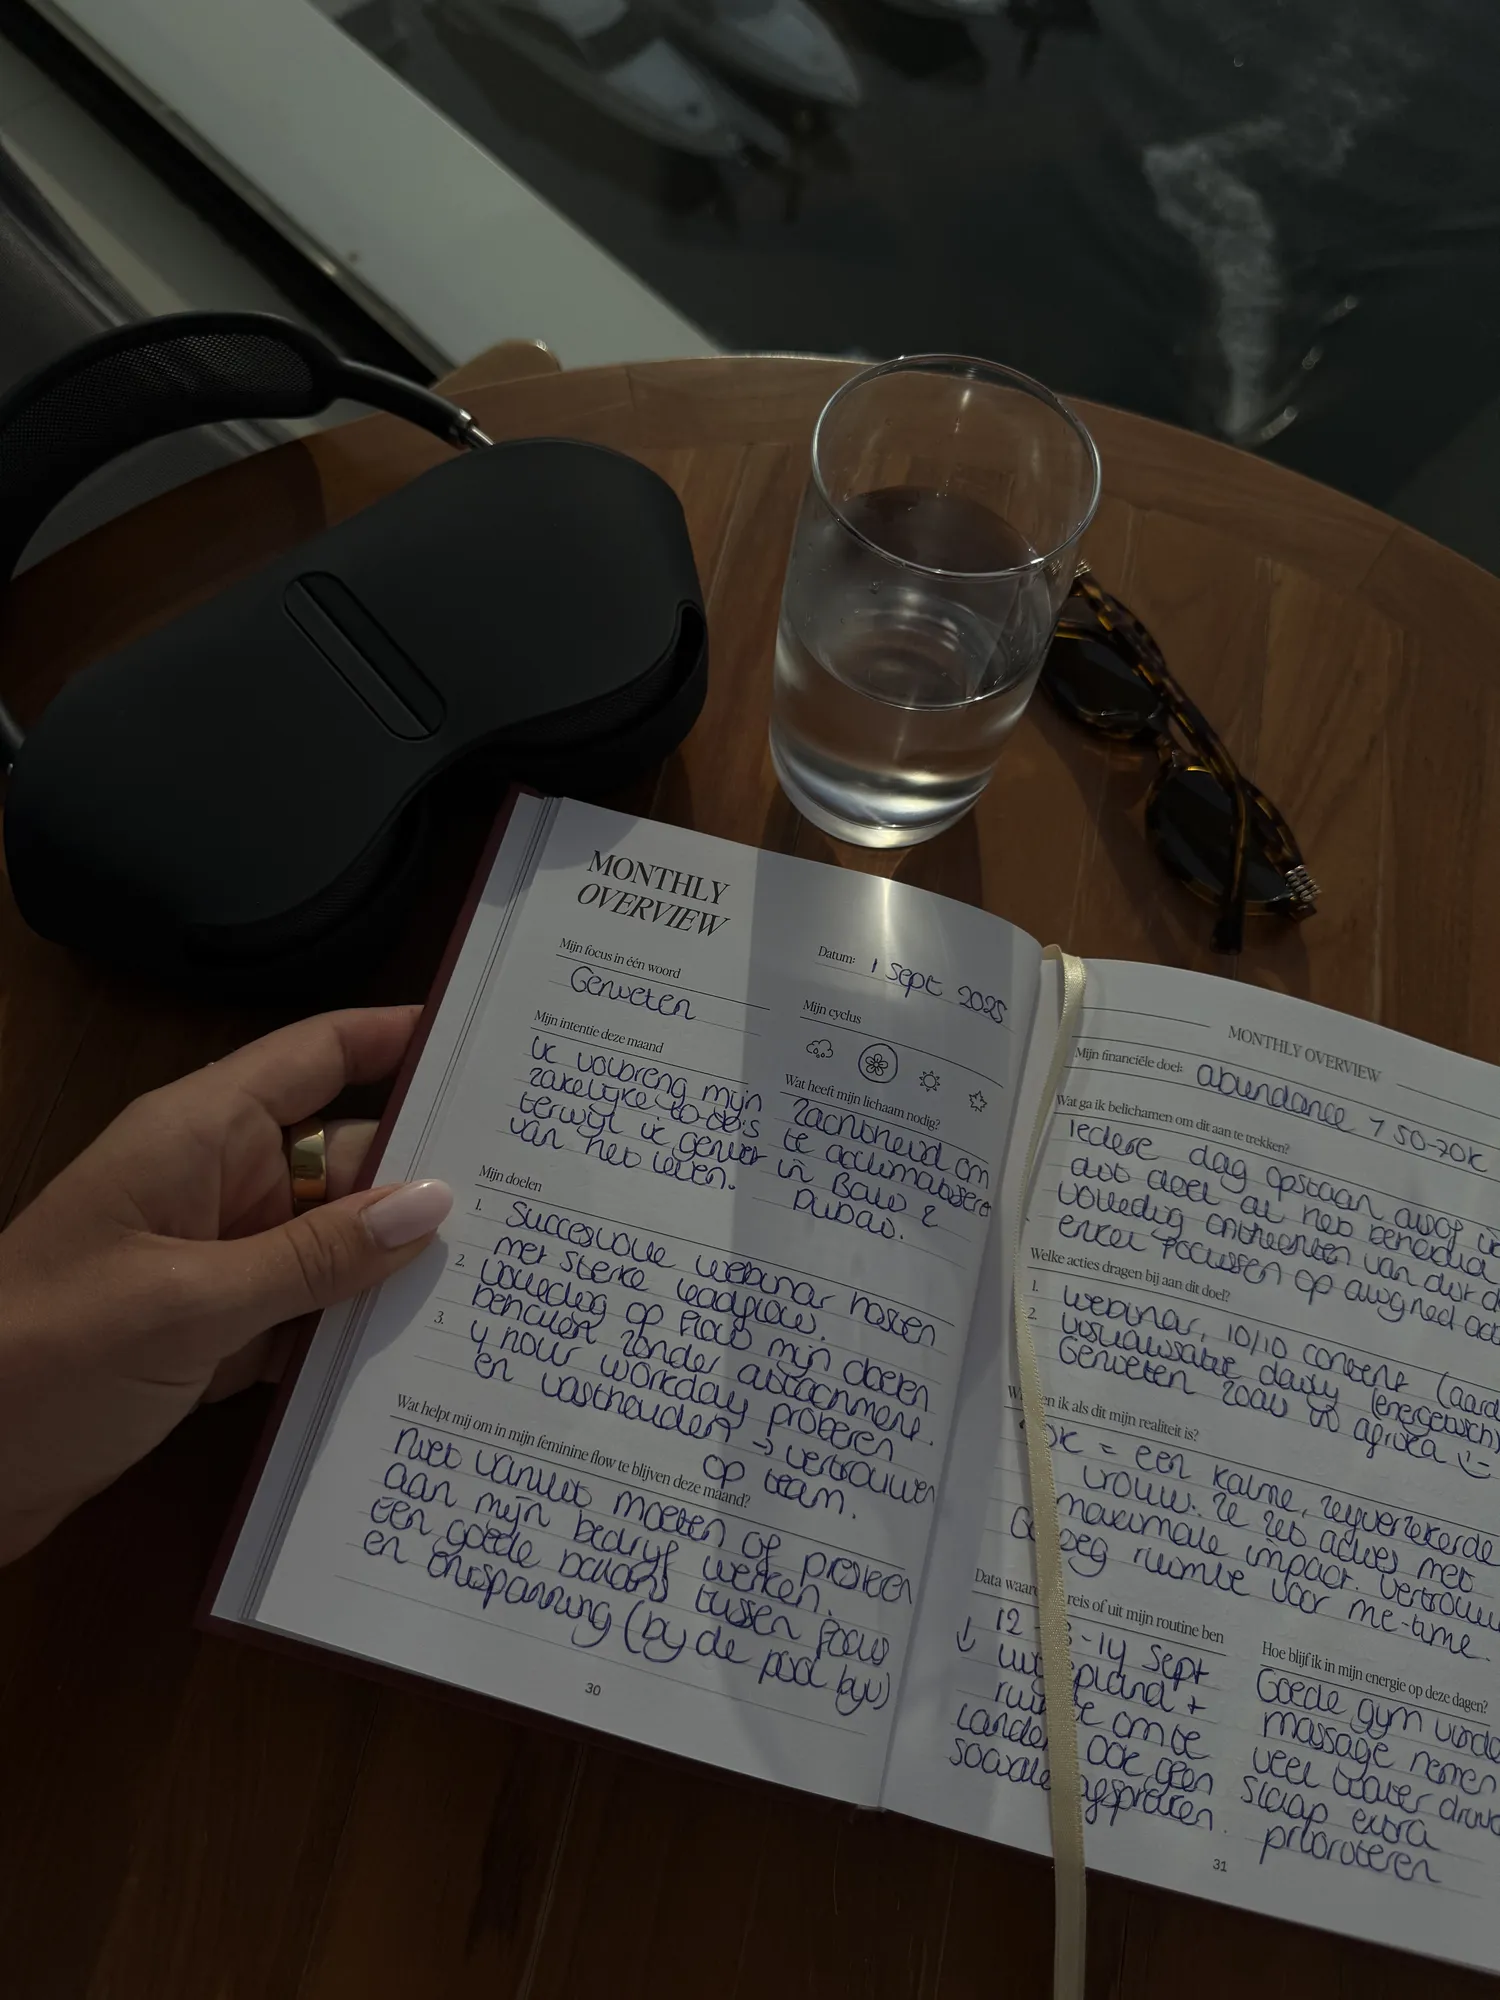 MONTHLY
OVERVIEW
Mijn focus in één woord
Genieten
Mijn intentie deze maand
ik volbreng mijn
zakelijke to-do's
terwijl ik geniet
van het leven.
Datum: 1 Sept 2025
Mijn cyclus
Wat heeft mijn lichaam nodig?
Zachtheid om
te acclimatiseren
in Bali &
Dubai.
Mijn doelen
1. Succesvolle webinar hosten
met sterke leadflow.
2. Volledig op flow mijn doelen
behalen zonder attachment.
3. 4 hour workday proberen
en vasthouden → vertrouwen
op team.
Wat helpt mij om in mijn feminine flow te blijven deze maand?
Niet vanuit moeten of pushen
aan mijn bedrijf werken.
Een goede balans tussen focus
en ontspanning (bij de pool bijv)
30
MONTHLY OVERVIEW
Mijn financiële doel: abundance 7 50-70K
Wat ga ik belichamen om dit aan te trekken?
Iedere dag opstaan alsof ik
dit doel al heb behaald
volledig onthechten van dit
enkel focussen op aligned
Welke acties dragen bij aan dit doel?
1. webinar, 10/10 content (aard
2. visualisatie daily (energetisch)
Genieten zoals in africa :)
en ik als dit mijn realiteit is?
= een kalme, zelfverzekerde
vrouw. Ze zet acties met
maximale impact. Vertrouw
ruimte voor me-time.
Data waar reis of uit mijn routine ben
12 -14 Sept
↓ +
om te
landen ook geen
sociale afspraken.
Hoe blijf ik in mijn energie op deze dagen?
Goede gym vinden
massage nemen
veel water
slaap extra
prioriteren
31